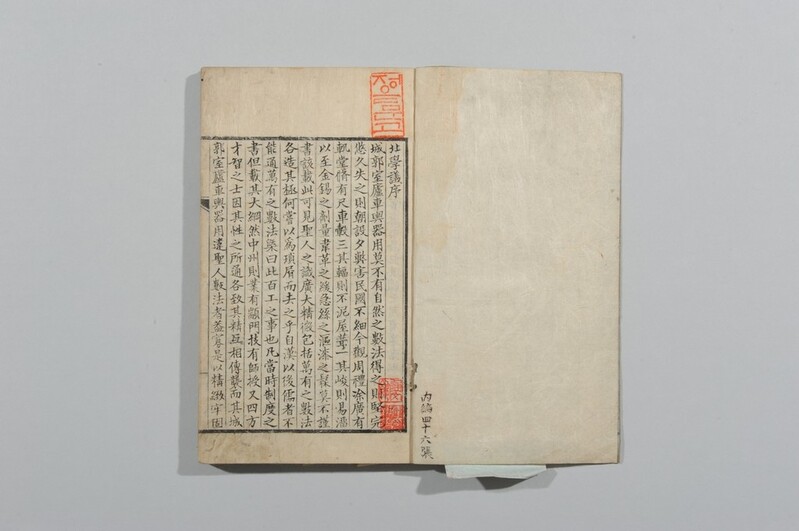 北學議序
城郭室廬車輿器用莫不有自然之數法得之則堅完
悠久失之則朝設夕弊害民國不細今觀周禮涂廣有
軌堂脩有尺車轂三其輻則不泥屋葺一其峻則易溜
以至金錫之劑量韋革之緩急絲之漚漆之髹莫不謹
書該載此可見聖人之識廣大精微包括萬有之數法
各造其極何嘗以爲瑣屑而去之乎自漢以後儒者不
能通萬有之數法槩曰此百工之事也凡當時制度之
書但載其大綱然中州則業有顓門技有師授又四方
才智之士因其性之所通各致其精互相傳襲而其城
郭室廬車輿器用違聖人數法者蓋寡是以精緻牢固
內編四十六張